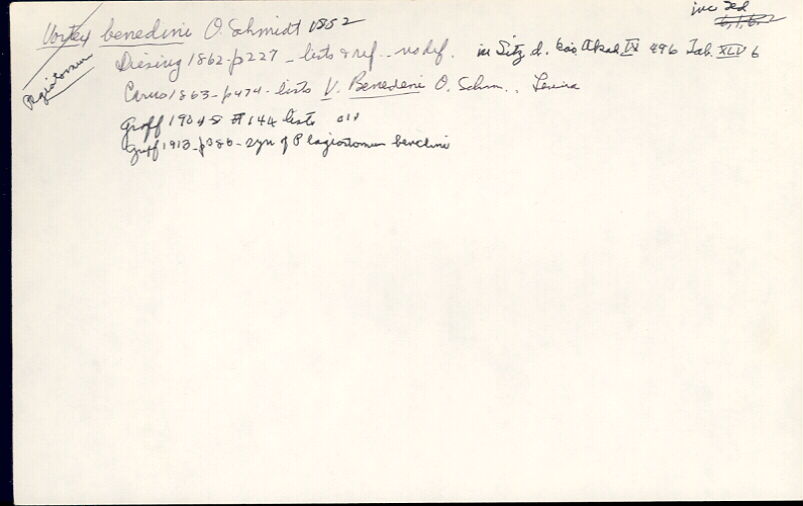 Vortex benedini O. Schmidt 1852
Plagiostomum
Diesing 1862-p227 - lists & ref. - no def. in Sitz d. kais Akad IX 496 Tab. XLV 6
Carus 1863-p474- lists V. Benedeni O. Schm.,
Graff 1904-5 # 144 lists
Graff 1913-p386- syn of Plagiostomum benedini